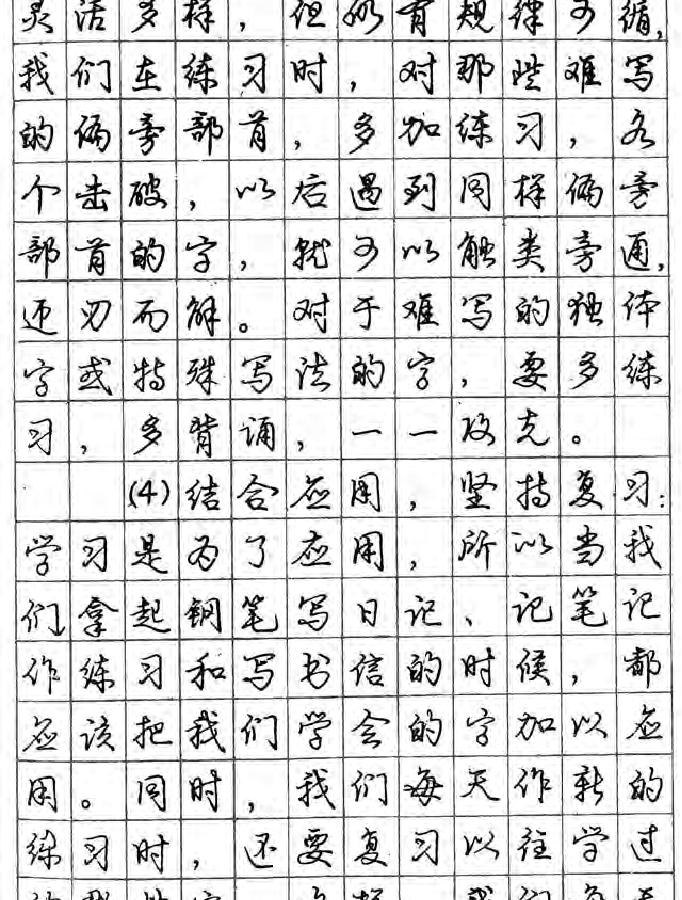 灵活多样，但仍有规律可循，
我们在练习时，对那些难写
的偏旁部首，多加练习，各
个击破，以后遇到同样偏旁
部首的字，就可以触类旁通，
迎刃而解。对于难写的独体
字或特殊写法的字，要多练
习，多背诵，一一攻克。
(4)结合应用，坚持复习：
学习是为了应用，所以当我
们拿起钢笔写日记、记笔记
作练习和写书信的时候，都
应该把我们学会的字加以应
用。同时，我们每天作新的
练习时，还要复习以往学过